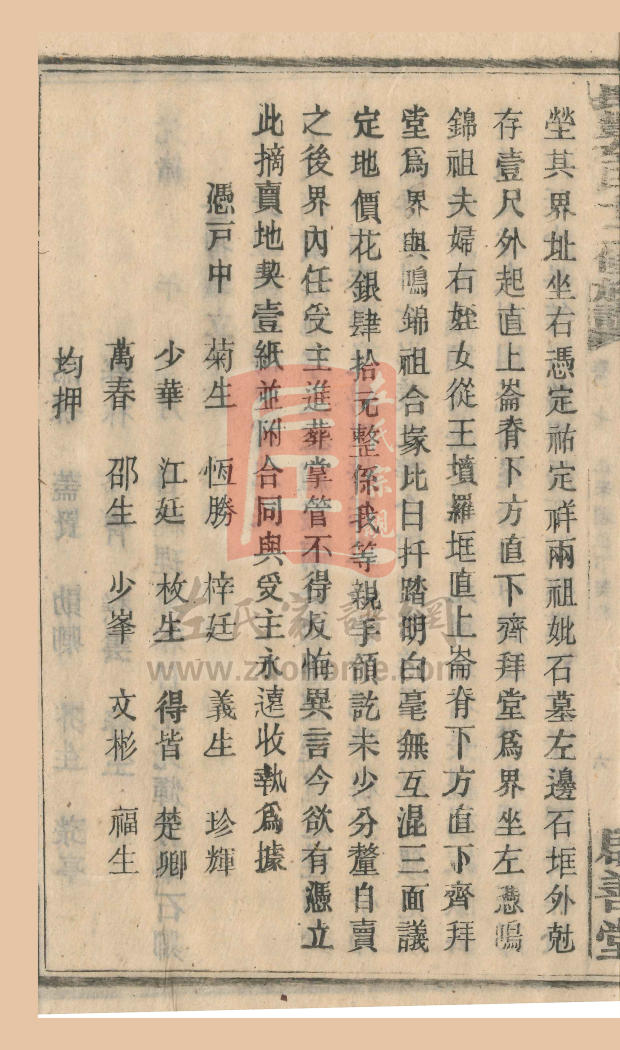 塋其界址坐右憑定祐定祥兩祖妣石墓左邊石框外尅
存壹尺外起直上崙脊下方直下齊拜堂爲界坐左憑鳴
錦祖夫婦右姪女從王墳羅框直上崙脊下方直下齊拜
堂爲界與鳴錦祖合塚比日扦踏明白毫無互混三面議
定地價花銀肆拾元整係我等親手領訖未少分釐自賣
之後界內任受主進葬掌管不得反悔異言今欲有憑立
此摘賣地契壹紙並附合同與受主永遠收執爲據
憑戸中 菊生 恆勝 梓廷 義生 珍輝
少華 江廷 枚生 得皆 楚卿
萬春 邵生 少峯 文彬 福生
均押
善堂
左氏宗親
左氏家譜網
www.zuohome.com